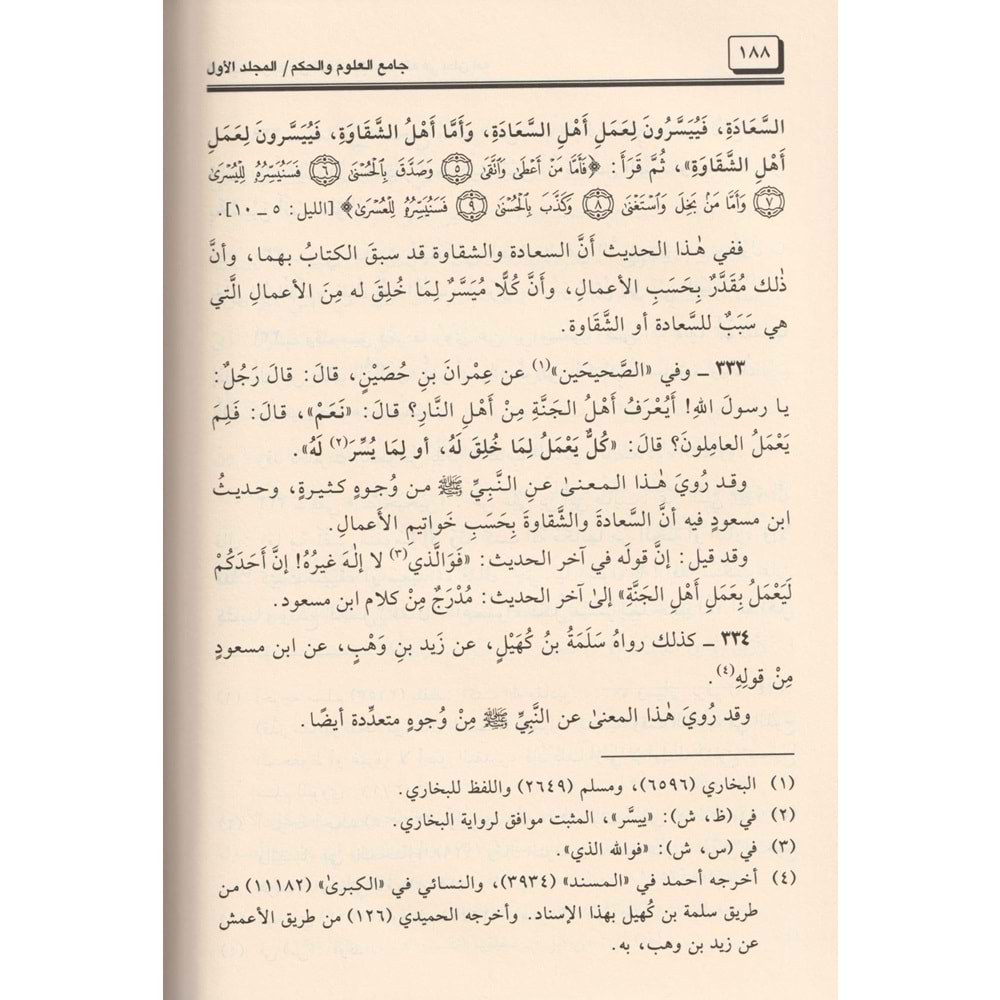 ١٨٨
جامع العلوم والحكم/ المجلد الأول
السَّعَادَةِ، فَيُيَسَّرُونَ لِعَمَلِ أَهْلِ السَّعَادَةِ، وَأَمَّا أَهْلُ الشَّقَاوَةِ، فَيُيَسَّرونَ لِعَمَلِ
أَهْلِ الشَّقَاوَةِ»، ثُمَّ قَرَأَ: ﴿فَأَمَّا مَنْ أَعْطَىٰ وَٱتَّقَىٰ ۝٥ وَصَدَّقَ بِٱلْحُسْنَىٰ ۝٦ فَسَنُيَسِّرُهُۥ لِلْيُسْرَىٰ
۝٧ وَأَمَّا مَنۢ بَخِلَ وَٱسْتَغْنَىٰ ۝٨ وَكَذَّبَ بِٱلْحُسْنَىٰ ۝٩ فَسَنُيَسِّرُهُۥ لِلْعُسْرَىٰ﴾ [الليل: ٥ ـ ١٠].
ففي هٰذا الحديث أَنَّ السعادة والشقاوة قد سبقَ الكتابُ بهما، وأنَّ
ذٰلك مُقَدَّرٌ بِحَسَبِ الأعمالِ، وأَنَّ كُلًّا مُيَسَّرٌ لِمَا خُلِقَ له مِنَ الأعمالِ الَّتي
هي سَبَبٌ للسَّعادة أو الشَّقَاوة.
٣٣٣ ـ وفي «الصَّحيحَين»(١) عن عِمْرانَ بنِ حُصَيْنٍ، قالَ: قالَ رَجُلٌ:
يا رسولَ اللهِ! أَيُعْرَفُ أَهْلُ الجَنَّةِ مِنْ أَهْلِ النَّارِ؟ قالَ: «نَعَمْ»، قالَ: فَلِمَ
يَعْمَلُ العامِلونَ؟ قالَ: «كُلٌّ يَعْمَلُ لِمَا خُلِقَ لَهُ، أو لِمَا يُسِّرَ(٢) لَهُ».
وقد رُويَ هٰذا المعنىٰ عنِ النَّبيِّ ﷺ من وُجوهٍ كثيرةٍ، وحديثُ
ابن مسعودٍ فيه أنَّ السَّعادةَ والشَّقاوةَ بِحَسَبِ خواتيمِ الأَعمالِ.
وقد قيل: إنَّ قولَه في آخر الحديث: «فَوَالَّذي(٣) لا إلٰهَ غيرُهُ! إنَّ أَحَدَكُمْ
لَيَعْمَلُ بِعَمَلِ أَهْلِ الجَنَّةِ» إلىٰ آخر الحديث: مُدْرَجٌ مِنْ كلام ابن مسعود.
٣٣٤ ـ كذلك رواهُ سَلَمَةُ بنُ كُهَيْلٍ، عن زَيد بنِ وَهْبٍ، عن ابن مسعودٍ
مِنْ قولِهِ(٤).
وقد رُويَ هٰذا المعنىٰ عن النَّبيِّ ﷺ مِنْ وُجوهٍ متعدِّدة أيضًا.
(١) البخاري (٦٥٩٦)، ومسلم (٢٦٤٩) واللفظ للبخاري.
(٢) في (ظ، ش): «ييسَّر»، المثبت موافق لرواية البخاري.
(٣) في (س، ش): «فوالله الذي».
(٤) أخرجه أحمد في «المسند» (٣٩٣٤)، والنسائي في «الكبرىٰ» (١١١٨٢) من
طريق سلمة بن كُهيل بهذا الإسناد. وأخرجه الحميدي (١٢٦) من طريق الأعمش
عن زيد بن وهب، به.